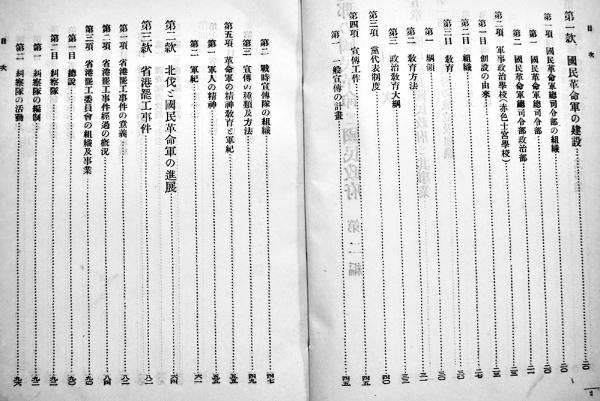 目次
第一款　國民革命軍の建設……二〇
第一項　國民革命軍總司令部の組織……二〇
第一　國民革命軍總司令部……
第二　國民革命軍總司令部政治部……
第二項　軍事政治學校（赤色士官學校）……
第一目　創設の由來……二七
第二目　組織……三〇
第三目　教育……三〇
第一　綱領……三一
第二　教育方法……
第三　政治教育大綱……
第三項　黨代表制度……四〇
第四項　宣傳工作……四五
第一　一般宣傳の計畫……四五
第二　戰時宣傳隊の組織……四七
第三　宣傳の種類及方法……四九
第五項　革命軍の精神教育と軍紀……五五
第一　軍人の精神……五五
第二　軍紀……六一
第二款　北伐と國民革命軍の進展……六四
第三款　省港罷工事件……八一
第一項　省港罷工事件の意義……八一
第二項　省港罷工事件經過の概況……八二
第三項　省港罷工委員會の組織及事業……
第一目　總說……
第二目　糾察隊……
第一　糾察隊の編制……
第二　糾察隊の活動……
目次